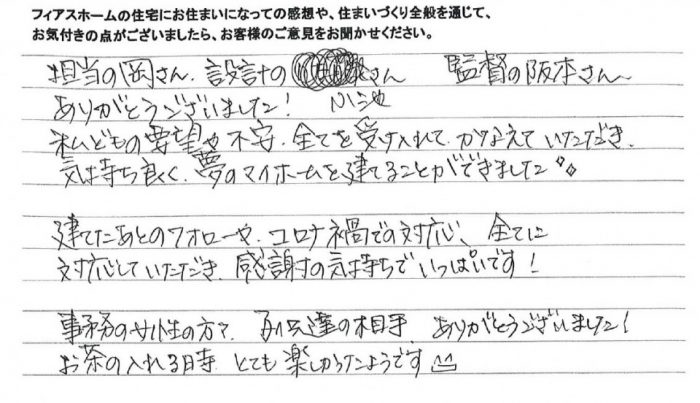 フィアスホームの住宅にお住まいになっての感想や、住まいづくり全般を通じて、
お気付きの点がございましたら、お客様のご意見をお聞かせください。
担当の岡さん、設計の さん 監督の阪本さん〜
小池
ありがとうございました!
私どもの要望や不安、全てを受け入れて、かなえていただき、
気持ち良く、夢のマイホームを建てることができました
建てたあとのフォローや、コロナ禍での対応、全てに
対応していただき、感謝の気持ちでいっぱいです!
事務の女性の方で、子供達の相手、ありがとうございました!
お茶の入れる時、とても楽しかったようです